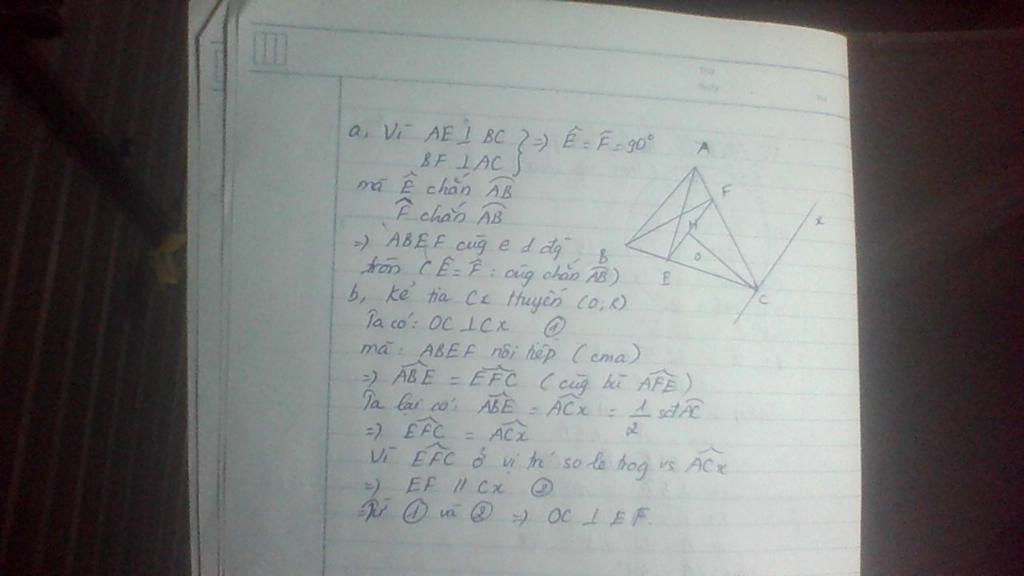 a, Vì AE ⊥ BC
BF ⊥ AC } => Ê = F̂ = 90°
mà Ê chắn A͡B
F̂ chắn A͡B
=> ABEF cùg e 1 đg
tròn (Ê = F̂ : cùg chắn A͡B)
b, Kẻ tia Cx tiếp tuyến (O, R)
Ta có: OC ⊥ Cx ①
mà: ABEF nội tiếp (cma)
=> ABE = EFC (cùg bù AFE)
Ta lại có: ABE = ACx = 1/2 sđ AC
=> EFC = ACx
Vì EFC ở vị trí so le trog vs ACx
=> EF // Cx ②
Từ ① và ② => OC ⊥ EF.
A
F
x
H
B
O
E
C